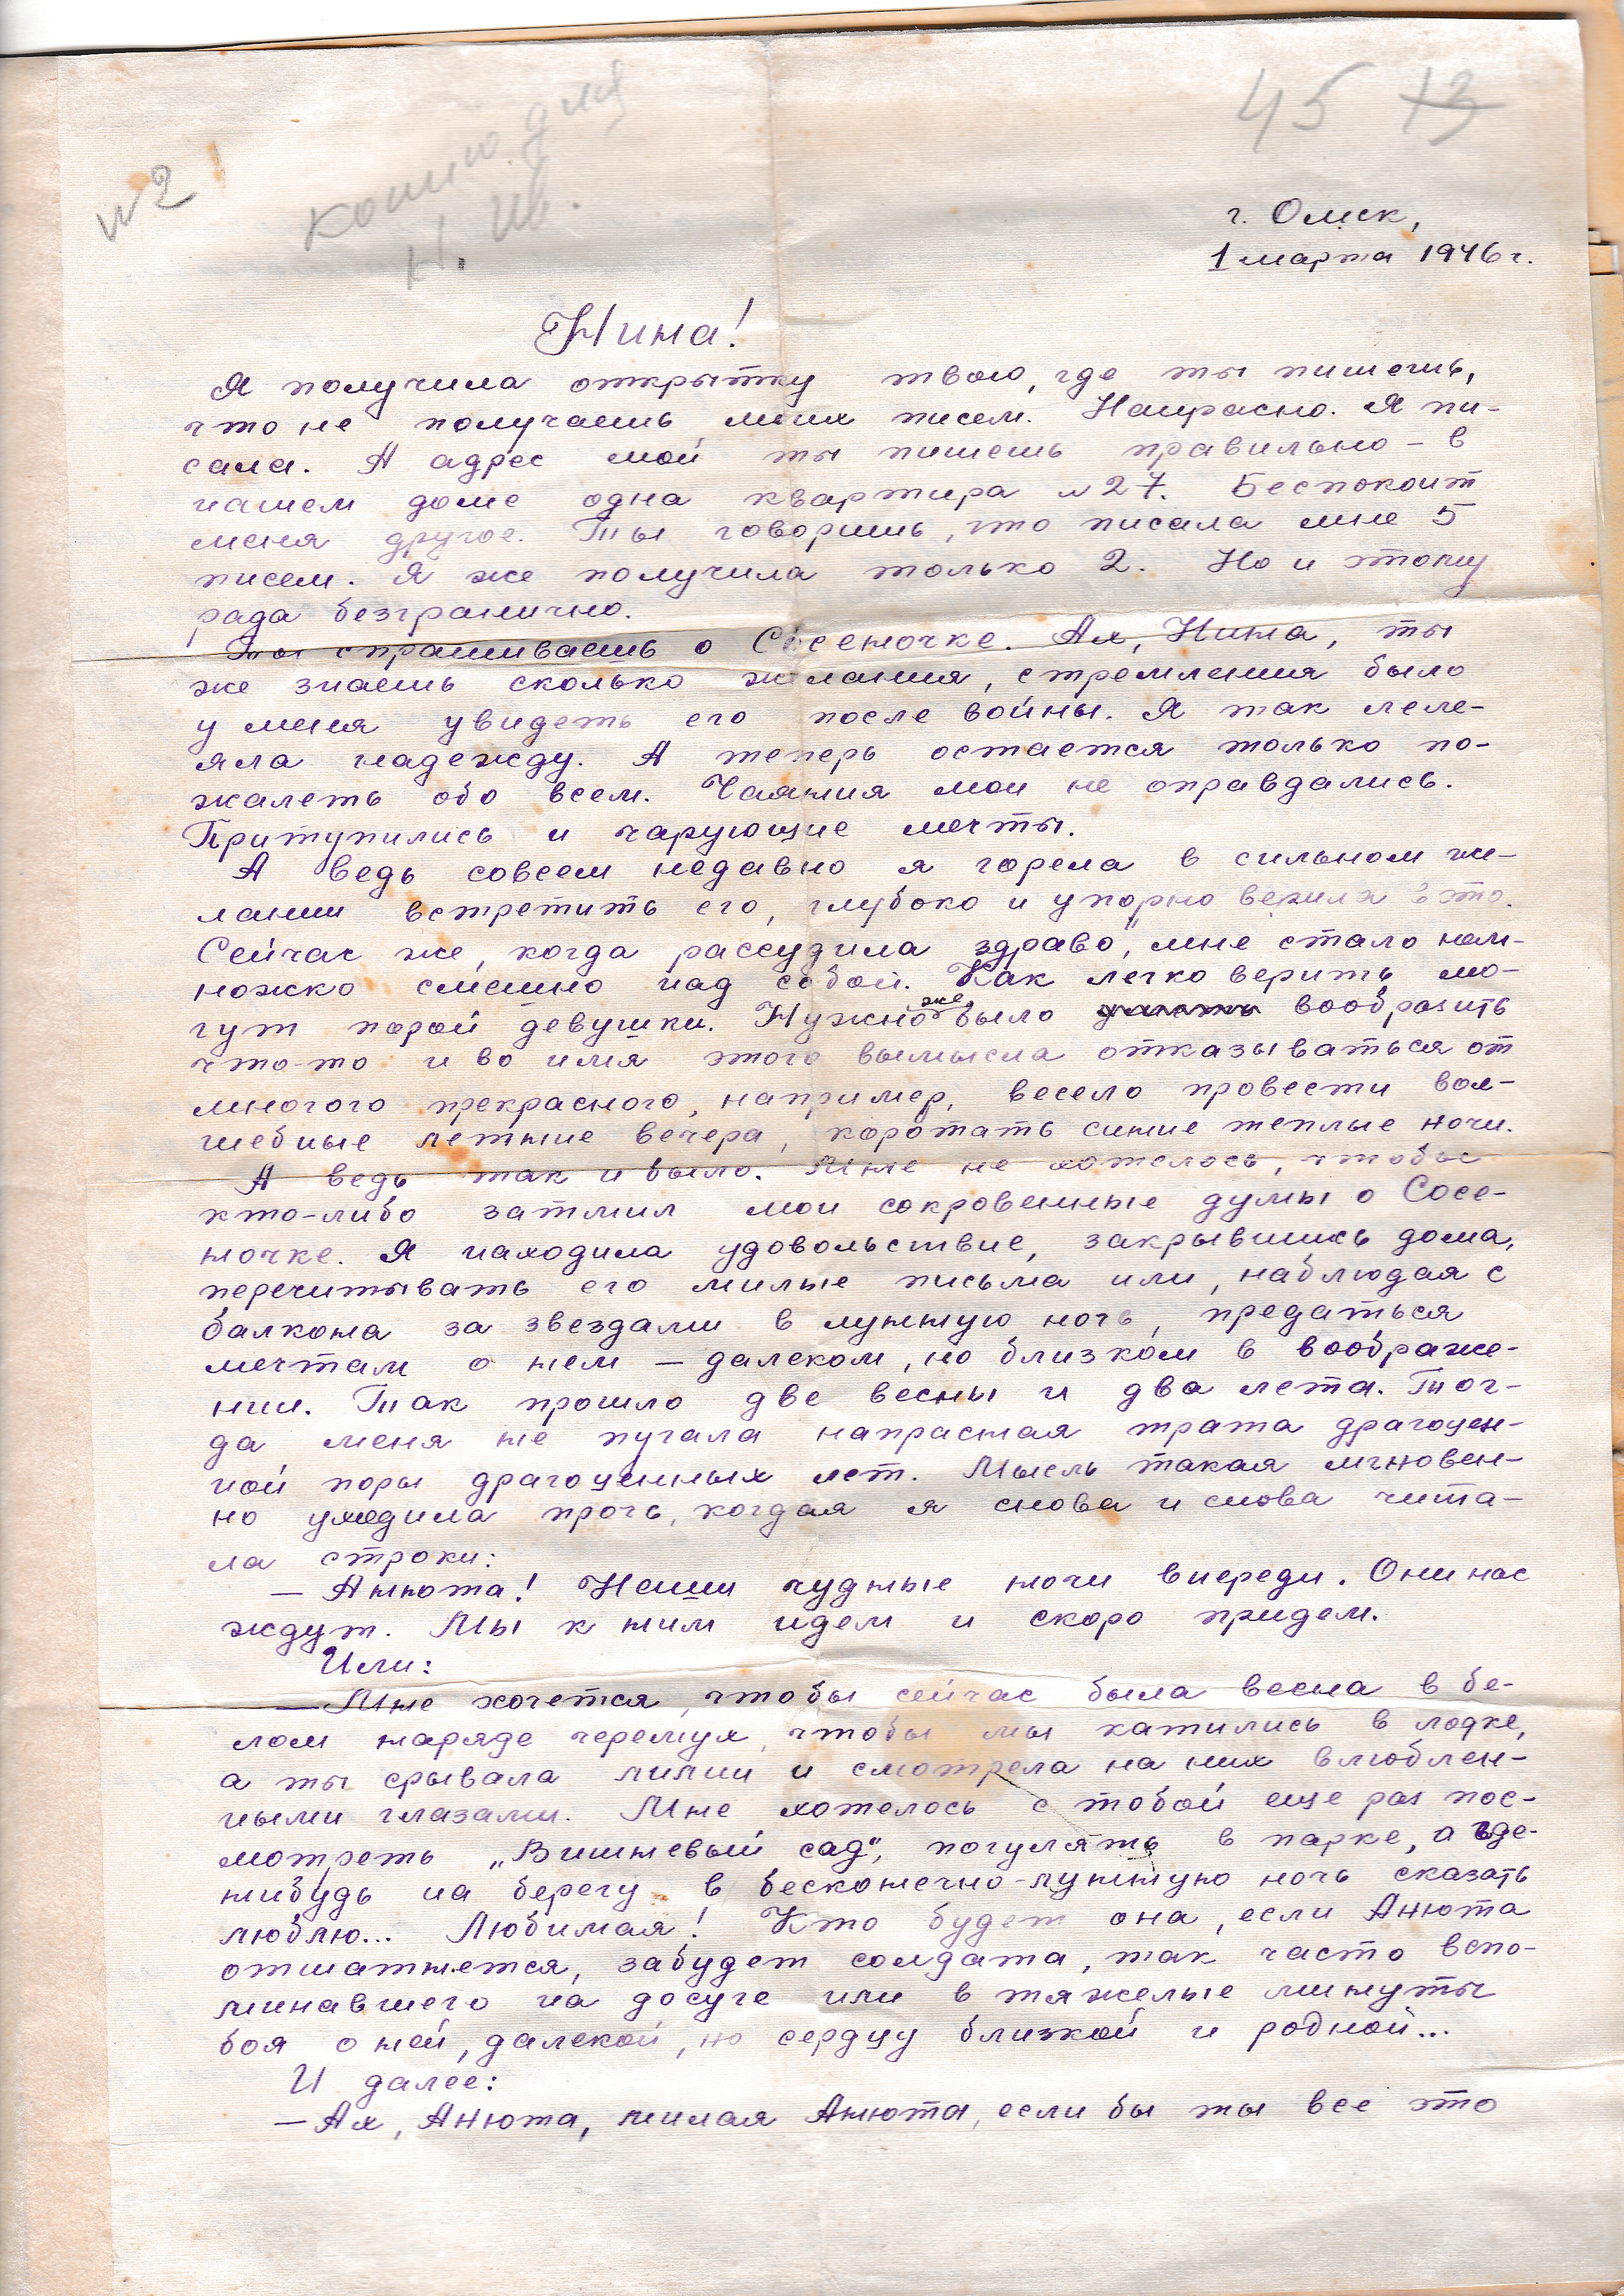 45 13
№2
копию для
Н. Ив.
г. Омск,
1 марта 1946 г.
Нина!
Я получила открытку твою, где ты пишешь,
что не получаешь моих писем. Напрасно. Я пи-
сала. А адрес мой ты пишешь правильно – в
нашем доме одна квартира №27. Беспокоит
меня другое. Ты говоришь, что писала мне 5
писем. Я же получила только 2. Но и этому
рада безгранично.
Ты спрашиваешь о Сосеночке. Ах, Нина, ты
же знаешь сколько желания, стремления было
у меня увидеть его после войны. Я так леле-
яла надежду. А теперь остается только по-
жалеть обо всем. Чаяния мои не оправдались.
Притупились и чарующие мечты.
А ведь совсем недавно я горела в сильном же-
лании встретить его, глубоко и упорно верила в это.
Сейчас же, когда рассудила „здраво“, мне стало нем-
ножко смешно над собой. Как легко верить мо-
гут порой девушки. Нужно же было вообразить
что-то и во имя этого вымысла отказываться от
многого прекрасного, например, весело провести вол-
шебные летние вечера, коротать синие теплые ночи.
А ведь так и было. Мне не хотелось, чтобы
кто-либо затмил мои сокровенные думы о Сосе-
ночке. Я находила удовольствие, закрывшись дома,
перечитывать его милые письма или, наблюдая с
балкона за звездами в лунную ночь, предаться
мечтам о нем – далеком, но близком в воображе-
нии. Так прошло две весны и два лета. Тог-
да меня не пугала напрасная трата драгоцен-
ной поры драгоценных лет. Мысль такая мгновен-
но уходила прочь, когдая я снова и снова чита-
ла строки:
– Анюта! Наши чудные ночи впереди. Они нас
ждут. Мы к ним идем и скоро придем.
Или:
– Мне хочется, чтобы сейчас была весна в бе-
лом наряде черемух, чтобы мы катились в лодке,
а ты срывала лилии и смотрела на них влюблен-
ными глазами. Мне хотелось с тобой еще раз пос-
мотреть „Вишневый сад“, погулять в парке, а где-
нибудь на берегу в бесконечно-лунную ночь сказать
люблю... Любимая! Кто будет она, если Анюта
отшатнется, забудет солдата, так часто вспо-
минавшего на досуге или в тяжелые минуты
боя о ней, далекой, но сердцу близкой и родной...
И далее:
– Ах, Анюта, милая Анюта, если бы ты все это